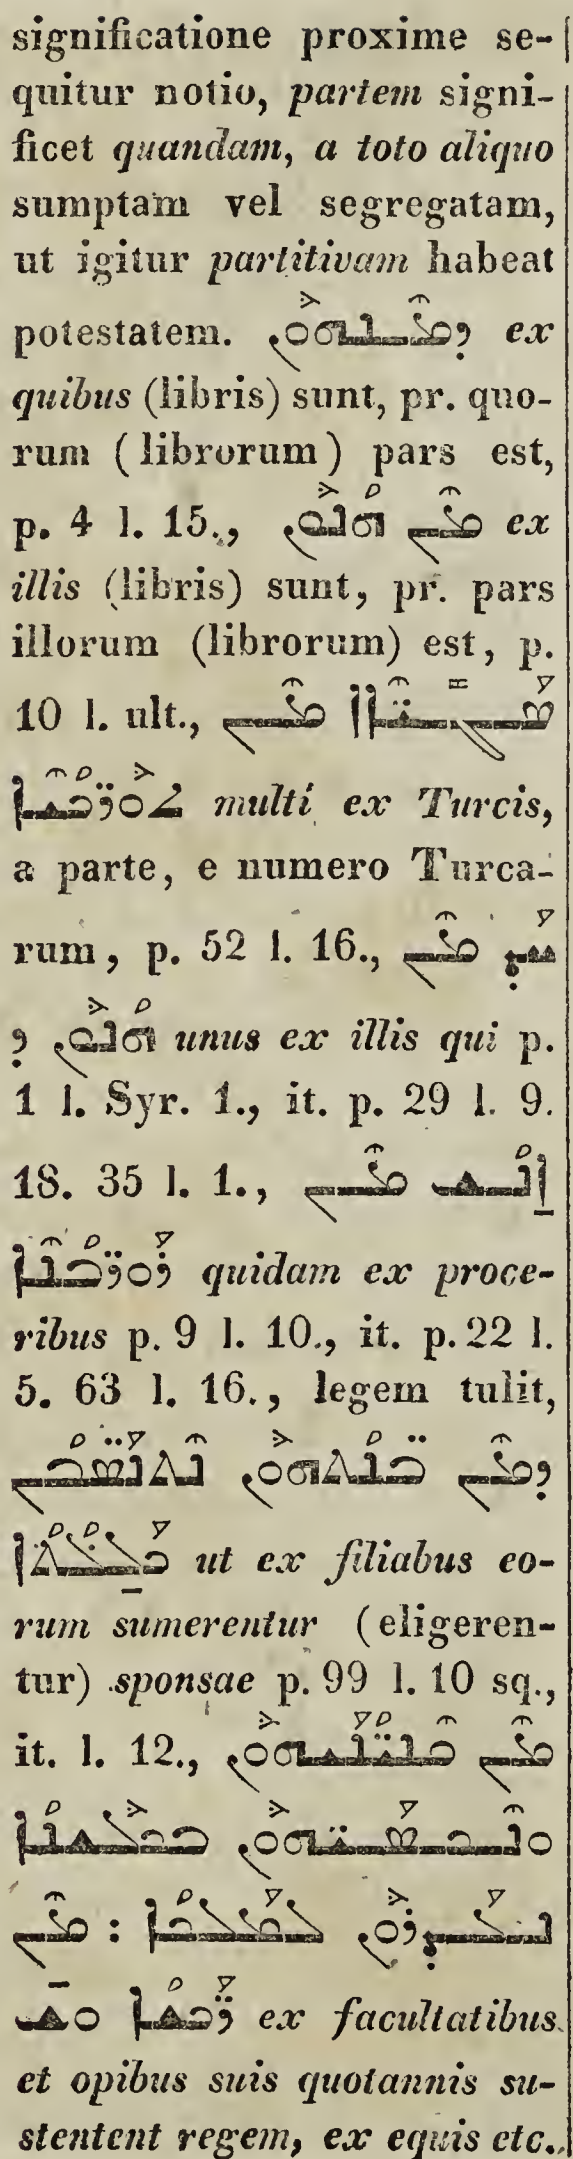 significatione proxime se-
quitur notio, partem signi-
ficet quandam, a toto aliquo
sumptam vel segregatam,
ut igitur partitivam habeat
potestatem. ܕܡܶܢܗܽܘܢ ex
quibus (libris) sunt, pr. quo-
rum (librorum) pars est,
p. 4 l. 15., ܡܶܢ ܗܳܢܽܘܢ ex
illis (libris) sunt, pr. pars
illorum (librorum) est, p.
10 l. ult., ܣܰܓܝ̈ܶܐܐ ܡܶܢ
ܬܽܘܪ̈ܟܳܝܶܐ multi ex Turcis,
a parte, e numero Turca-
rum, p. 52 l. 16., ܚܰܕ ܡܶܢ
ܗܳܢܽܘܢ ܕ unus ex illis qui p.
1 l. Syr. 1., it. p. 29 l. 9.
18. 35 l. 1., ܐ̱ܢܳܫ ܡܶܢ
ܪܰܘܪ̈ܒܳܢܶܐ quidam ex proce-
ribus p. 9 l. 10., it. p. 22 l.
5. 63 l. 16., legem tulit,
ܕܡܶܢ ܒܢ̈ܳܬܗܽܘܢ ܢܶܬܢܰܣܒ̈ܳܢ
ܟܰܠ̱ܠܳܬܳܐ ut ex filiabus eo-
rum sumerentur (eligeren-
tur) sponsae p. 99 l. 10 sq.,
it. l. 12., ܡܶܢ ܩܶܢܝܳܢ̈ܰܝܗܽܘܢ
ܘܢܶܟܣ̈ܰܝܗܽܘܢ ܒܟܽܠܫܢܳܐ
ܢܥܰܕܪܽܘܢ ܠܡܰܠܟܳܐ : ܡܶܢ
ܪ̈ܰܟܫܳܐ ܘܫ ex facultatibus
et opibus suis quotannis su-
stentent regem, ex equis etc.,